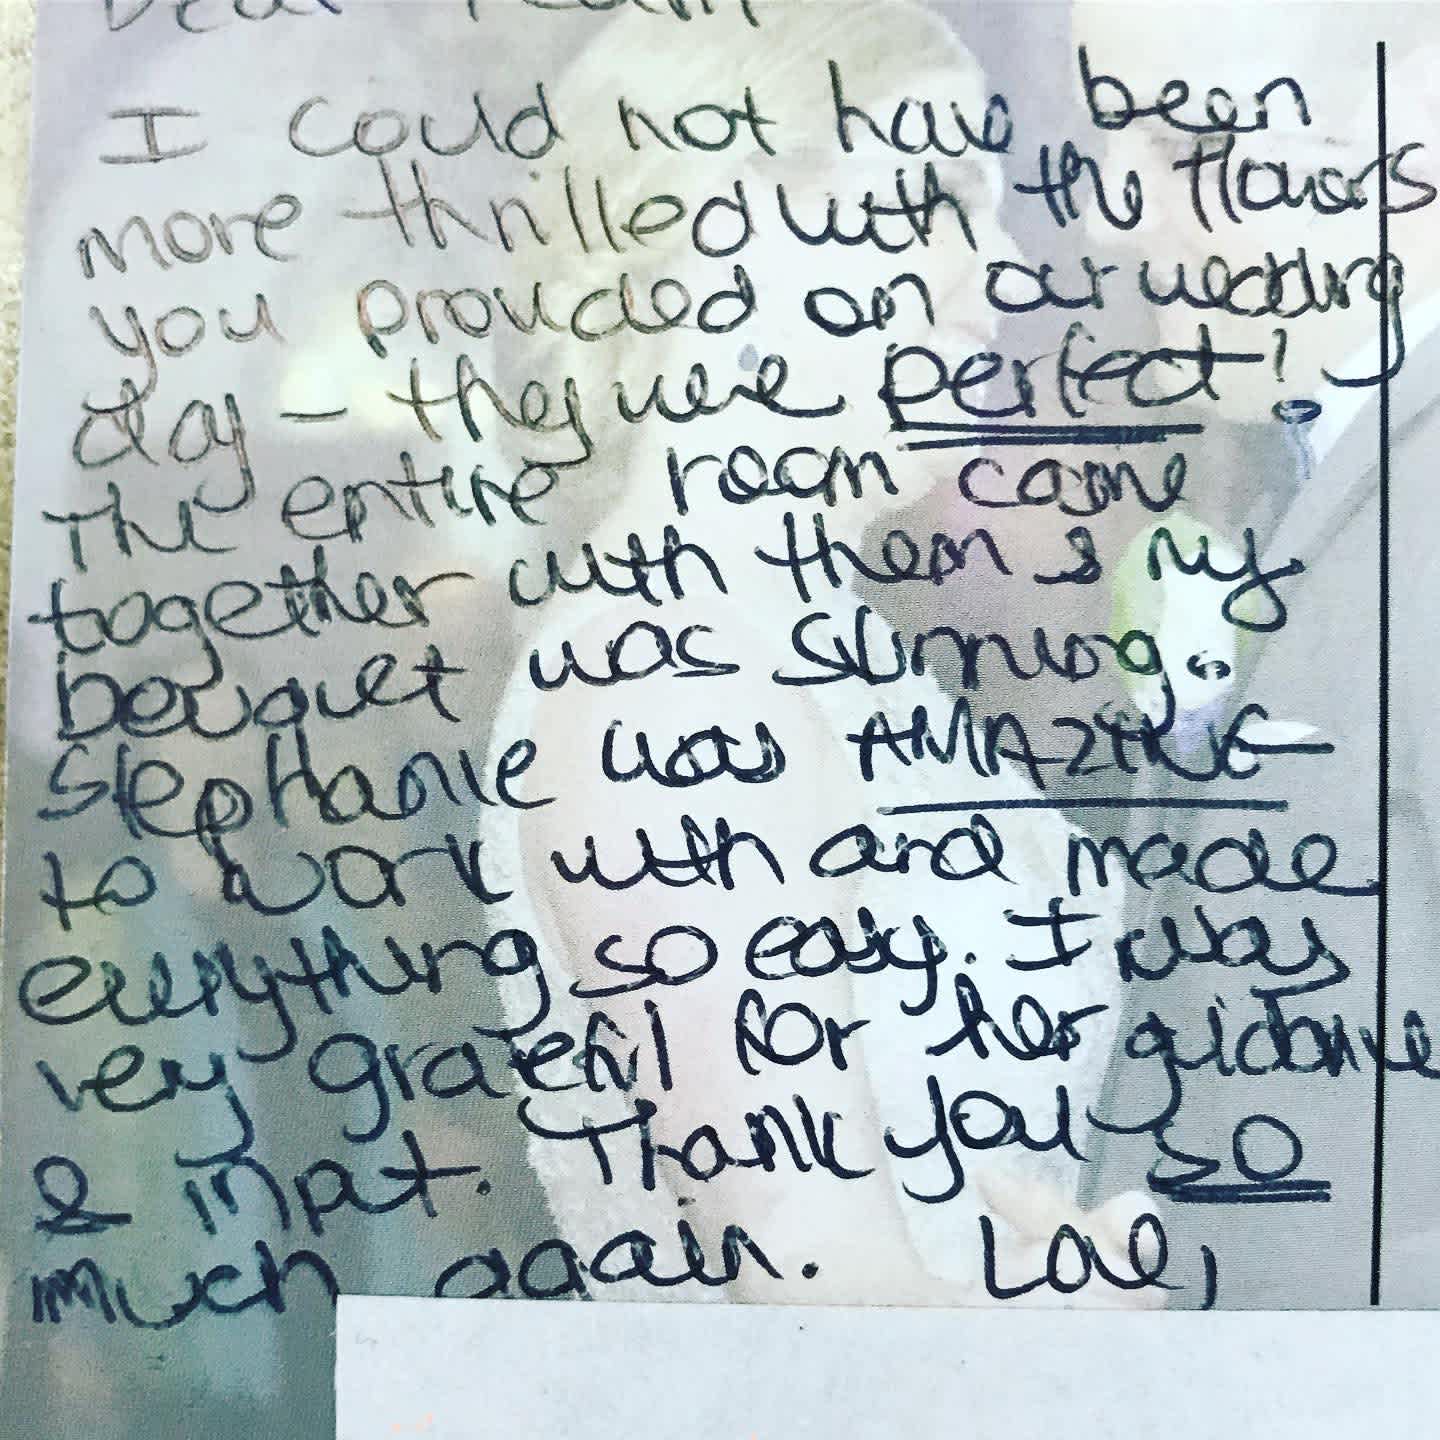 Dear Team
I could not have been
more thrilled with the flowers
you provided on our wedding
day - they were perfect!
The entire room came
together with them & my
bouquet was stunning.
Stephanie was AMAZING
to work with and made
everything so easy. I was
very grateful for her guidance
& input. Thank you so
much again. Love,